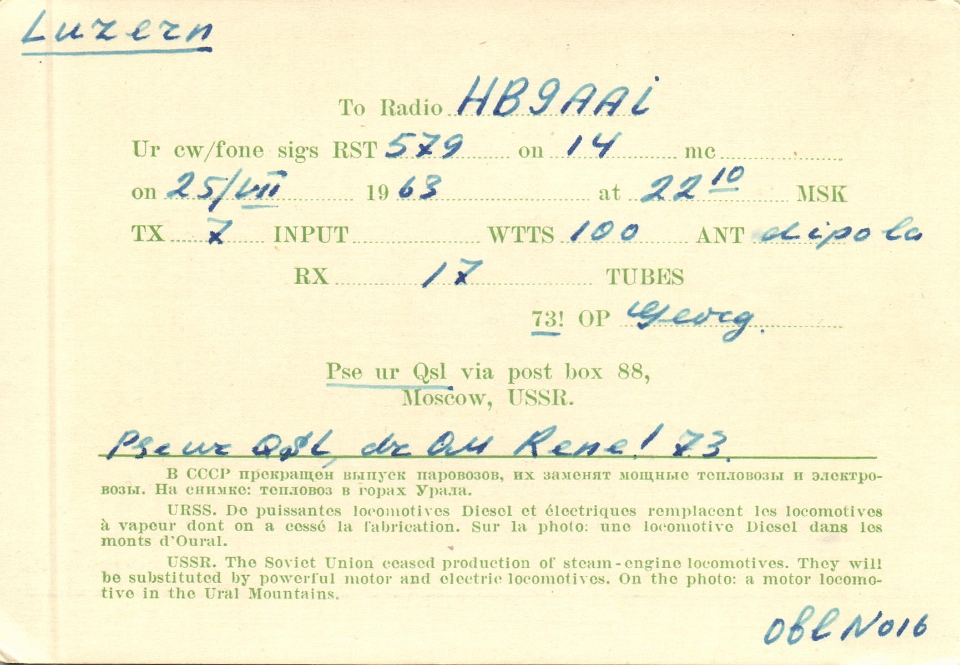 Luzern
To Radio HB9AAi
Ur cw/fone sigs RST 579 on 14 mc
on 25/VIII 1963 at 22 10 MSK
TX 7 INPUT WTTS 100 ANT dipola
RX 17 TUBES
73! OP Georg.
Pse ur Qsl via post box 88,
Moscow, USSR.
Pse ur QSL, dr OM Rene! 73.
В СССР прекращен выпуск паровозов, их заменят мощные тепловозы и электро-
возы. На снимке: тепловоз в горах Урала.
URSS. De puissantes locomotives Diesel et électriques remplacent les locomotives
à vapeur dont on a cessé la fabrication. Sur la photo: une locomotive Diesel dans les
monts d'Oural.
USSR. The Soviet Union ceased production of steam-engine locomotives. They will
be substituted by powerful motor and electric locomotives. On the photo: a motor locomo-
tive in the Ural Mountains.
Obl N016